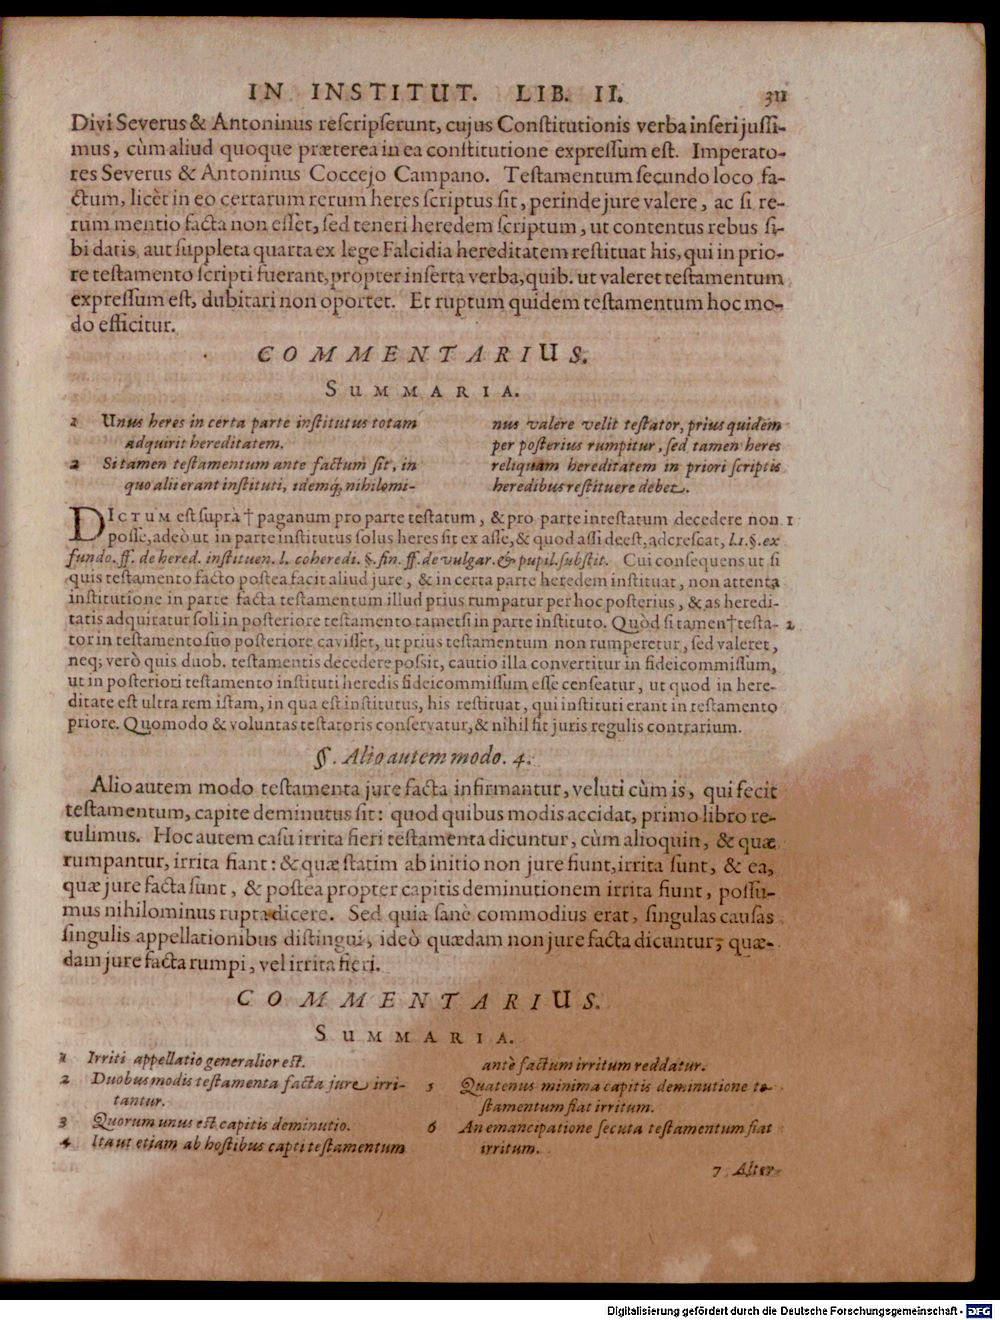 IN INSTITUT. LIB. II. 311
Divi Severus & Antoninus rescripserunt, cujus Constitutionis verba inseri jussi-
mus, cùm aliud quoque præterea in ea constitutione expressum est. Imperato-
res Severus & Antoninus Coccejo Campano. Testamentum secundo loco fa-
ctum, licèt in eo certarum rerum heres scriptus sit, perinde jure valere, ac si re-
rum mentio facta non esset, sed teneri heredem scriptum, ut contentus rebus si-
bi datis, aut suppleta quarta ex lege Falcidia hereditatem restituat his, qui in prio-
re testamento scripti fuerant, propter inserta verba, quib. ut valeret testamentum
expressum est, dubitari non oportet. Et ruptum quidem testamentum hoc mo-
do efficitur.
COMMENTARIUS.
SUMMARIA.
1 Unus heres in certa parte institutus totam
adquirit hereditatem.
2 Si tamen testamentum ante factum sit, in
quo alii erant instituti, idemq́; nihilomi-
nus valere velit testator, prius quidem
per posterius rumpitur, sed tamen heres
reliquam hereditatem in priori scriptis
heredibus restituere debet.
DICTUM est suprà † paganum pro parte testatum, & pro parte intestatum decedere non 1
posse, adeò ut in parte institutus solus heres sit ex asse, & quod assi deest, adcrescat, l.1.§.ex
fundo. ff. de hered. instituen. l. coheredi. §. fin. ff. de vulgar. & pupil. substit. Cui consequens ut si
quis testamento facto postea facit aliud jure, & in certa parte heredem instituat, non attenta
institutione in parte facta testamentum illud prius rumpatur per hoc posterius, & as heredi-
tatis adquiratur soli in posteriore testamento tametsi in parte instituto. Quòd si tamen † testa- 2
tor in testamento suo posteriore cavisset, ut prius testamentum non rumperetur, sed valeret,
neq; verò quis duob. testamentis decedere possit, cautio illa convertitur in fideicommissum,
ut in posteriori testamento instituti heredis fideicommissum esse censeatur, ut quod in here-
ditate est ultra rem istam, in qua est institutus, his restituat, qui instituti erant in testamento
priore. Quomodo & voluntas testatoris conservatur, & nihil fit juris regulis contrarium.
§. Alio autem modo. 4.
Alio autem modo testamenta jure facta infirmantur, veluti cùm is, qui fecit
testamentum, capite deminutus sit: quod quibus modis accidat, primo libro re-
tulimus. Hoc autem casu irrita fieri testamenta dicuntur, cùm alioquin, & quæ
rumpantur, irrita fiant: & quæ statim ab initio non jure fiunt, irrita sunt, & ea,
quæ jure facta sunt, & postea propter capitis deminutionem irrita fiunt, possu-
mus nihilominus rupta dicere. Sed quia sanè commodius erat, singulas causas
singulis appellationibus distingui, ideò quædam non jure facta dicuntur; quæ-
dam jure facta rumpi, vel irrita fieri.
COMMENTARIUS.
SUMMARIA.
1 Irriti appellatio generalior est.
2 Duobus modis testamenta facta jure irri-
tantur.
3 Quorum unus est capitis deminutio.
4 Ita ut etiam ab hostibus capti testamentum
antè factum irritum reddatur.
5 Quatenus minima capitis deminutione te-
stamentum fiat irritum.
6 An emancipatione secuta testamentum fiat
irritum.
7 Alter
Digitalisierung gefördert durch die Deutsche Forschungsgemeinschaft - DFG